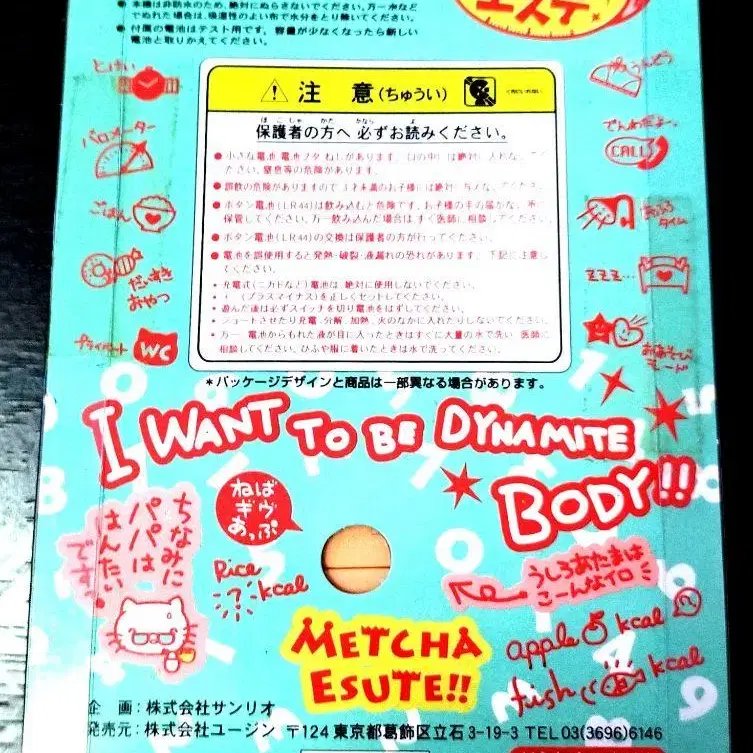 本機は非防水のため、絶対にぬらさないでください。万一水など
でぬれた場合は、吸湿性のよい布で水分をとり除いてください。
● 付属の電池はテスト用です。容量が少なくなったら新しい
電池と取りかえてください。
エステ
とけい
バロメーター
ごはん
だいすき
おやつ
プライベート
WC
⚠ 注 意 (ちゅうい)
ほごしゃ かた かなら よ
保護者の方へ 必ずお読みください。
● 小さな電池 電池ブタ ねじがあります。口の中には絶対に入れないでく
ださい。窒息等の危険があります。
● 誤飲の危険がありますので3才未満のお子様には絶対に与えないでください。
● ボタン電池(LR44)は飲み込むと危険です。お子様の手の届かない所に
保管してください。万一飲み込んだ場合はすぐ医師に相談してください。
● ボタン電池(LR44)の交換は保護者の方が行ってください。
● 電池を誤使用すると発熱・破裂・液漏れの恐れがあります。下記に注意し
てください。
• 充電式(ニカドなど)電池は、絶対に使用しないでください。
• + - (プラスマイナス)を正しくセットしてください。
• 遊んだ後は必ずスイッチを切り電池をはずしてください。
• ショートさせたり充電、分解、加熱、火のなかに入れたりしないでください。
• 万一、電池からもれた液が目に入ったときはすぐに大量の水で洗い、医師に
相談してください。ひふや服に着いたときは水で洗ってください。
うんどう
でんわだよー
CALL
タイム
ZZZ…
おあそび
モード
*パッケージデザインと商品は一部異なる場合があります。
I WANT TO BE DYNAMITE
BODY!!
ちなみに
パパは
はんたい
です。
ねば
ギヴ
あっぷ
Rice
? kcal
うしろあたまは
こーんなイロ
apple kcal
fish kcal
METCHA
ESUTE!!
企 画：株式会社サンリオ
発売元：株式会社ユージン 〒124 東京都葛飾区立石3-19-3 TEL 03(3696)6146